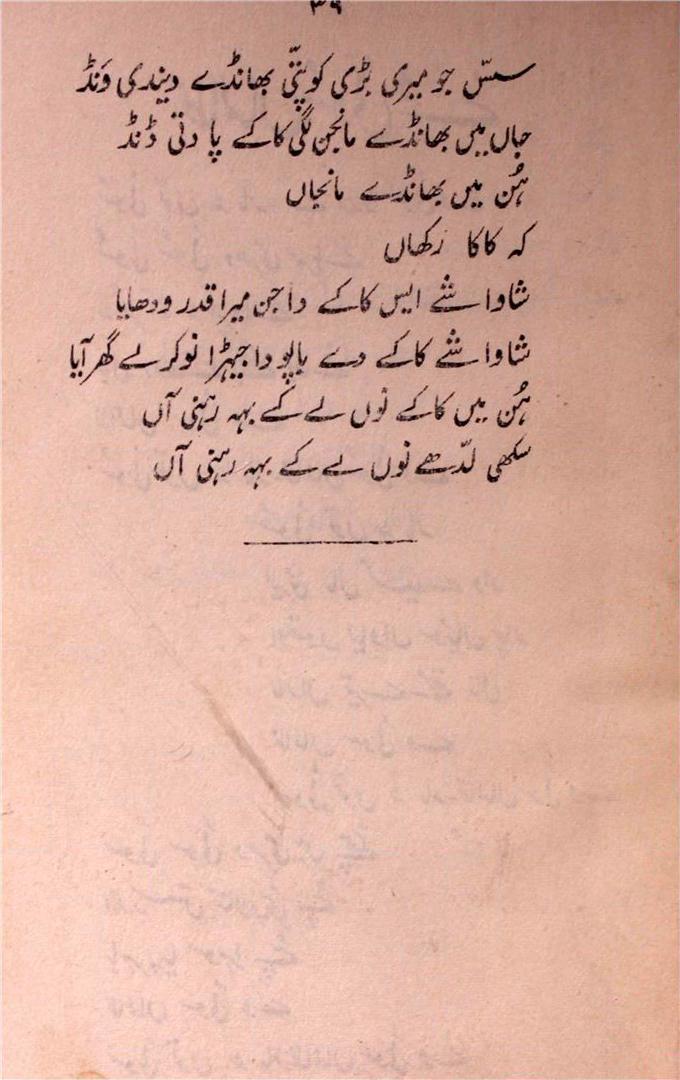 ۳۹
سسّ جو میری بڑی کوپتّی بھانڈے دیندی وَنڈ
جاں میں بھانڈے مانجن لگی کاکے پا دتی ڈنڈ
ہُن میں بھانڈے مانجاں
کہ کاکا رکھاں
شاواشے ایس کاکے دا جن میرا قدر ودھایا
شاواشے کاکے دے باپو دا جیہڑا نوکر لے گھر آیا
ہُن میں کاکے نوں لے کے بہہ رہنی آں
سکھی لدّھے نوں لے کے بہہ رہنی آں